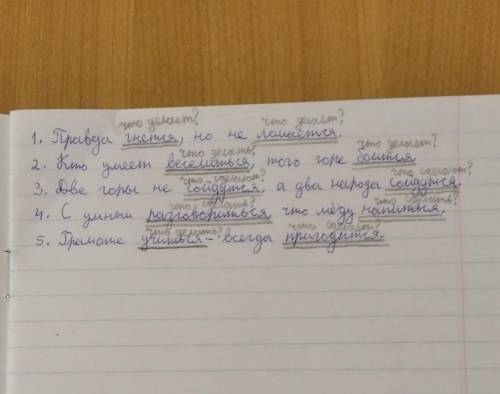 что делает? что делает?
1. Правда гнётся, но не ломается.
что делать? что делает?
2. Кто умеет веселиться, того горе боится.
что сделают? что сделают?
3. Две горы не сойдутся, а два народа сойдутся.
что сделать? что сделать?
4. С умным разговориться что мёду напиться.
что делать? что сделает?
5. Грамоте учиться - всегда пригодится.